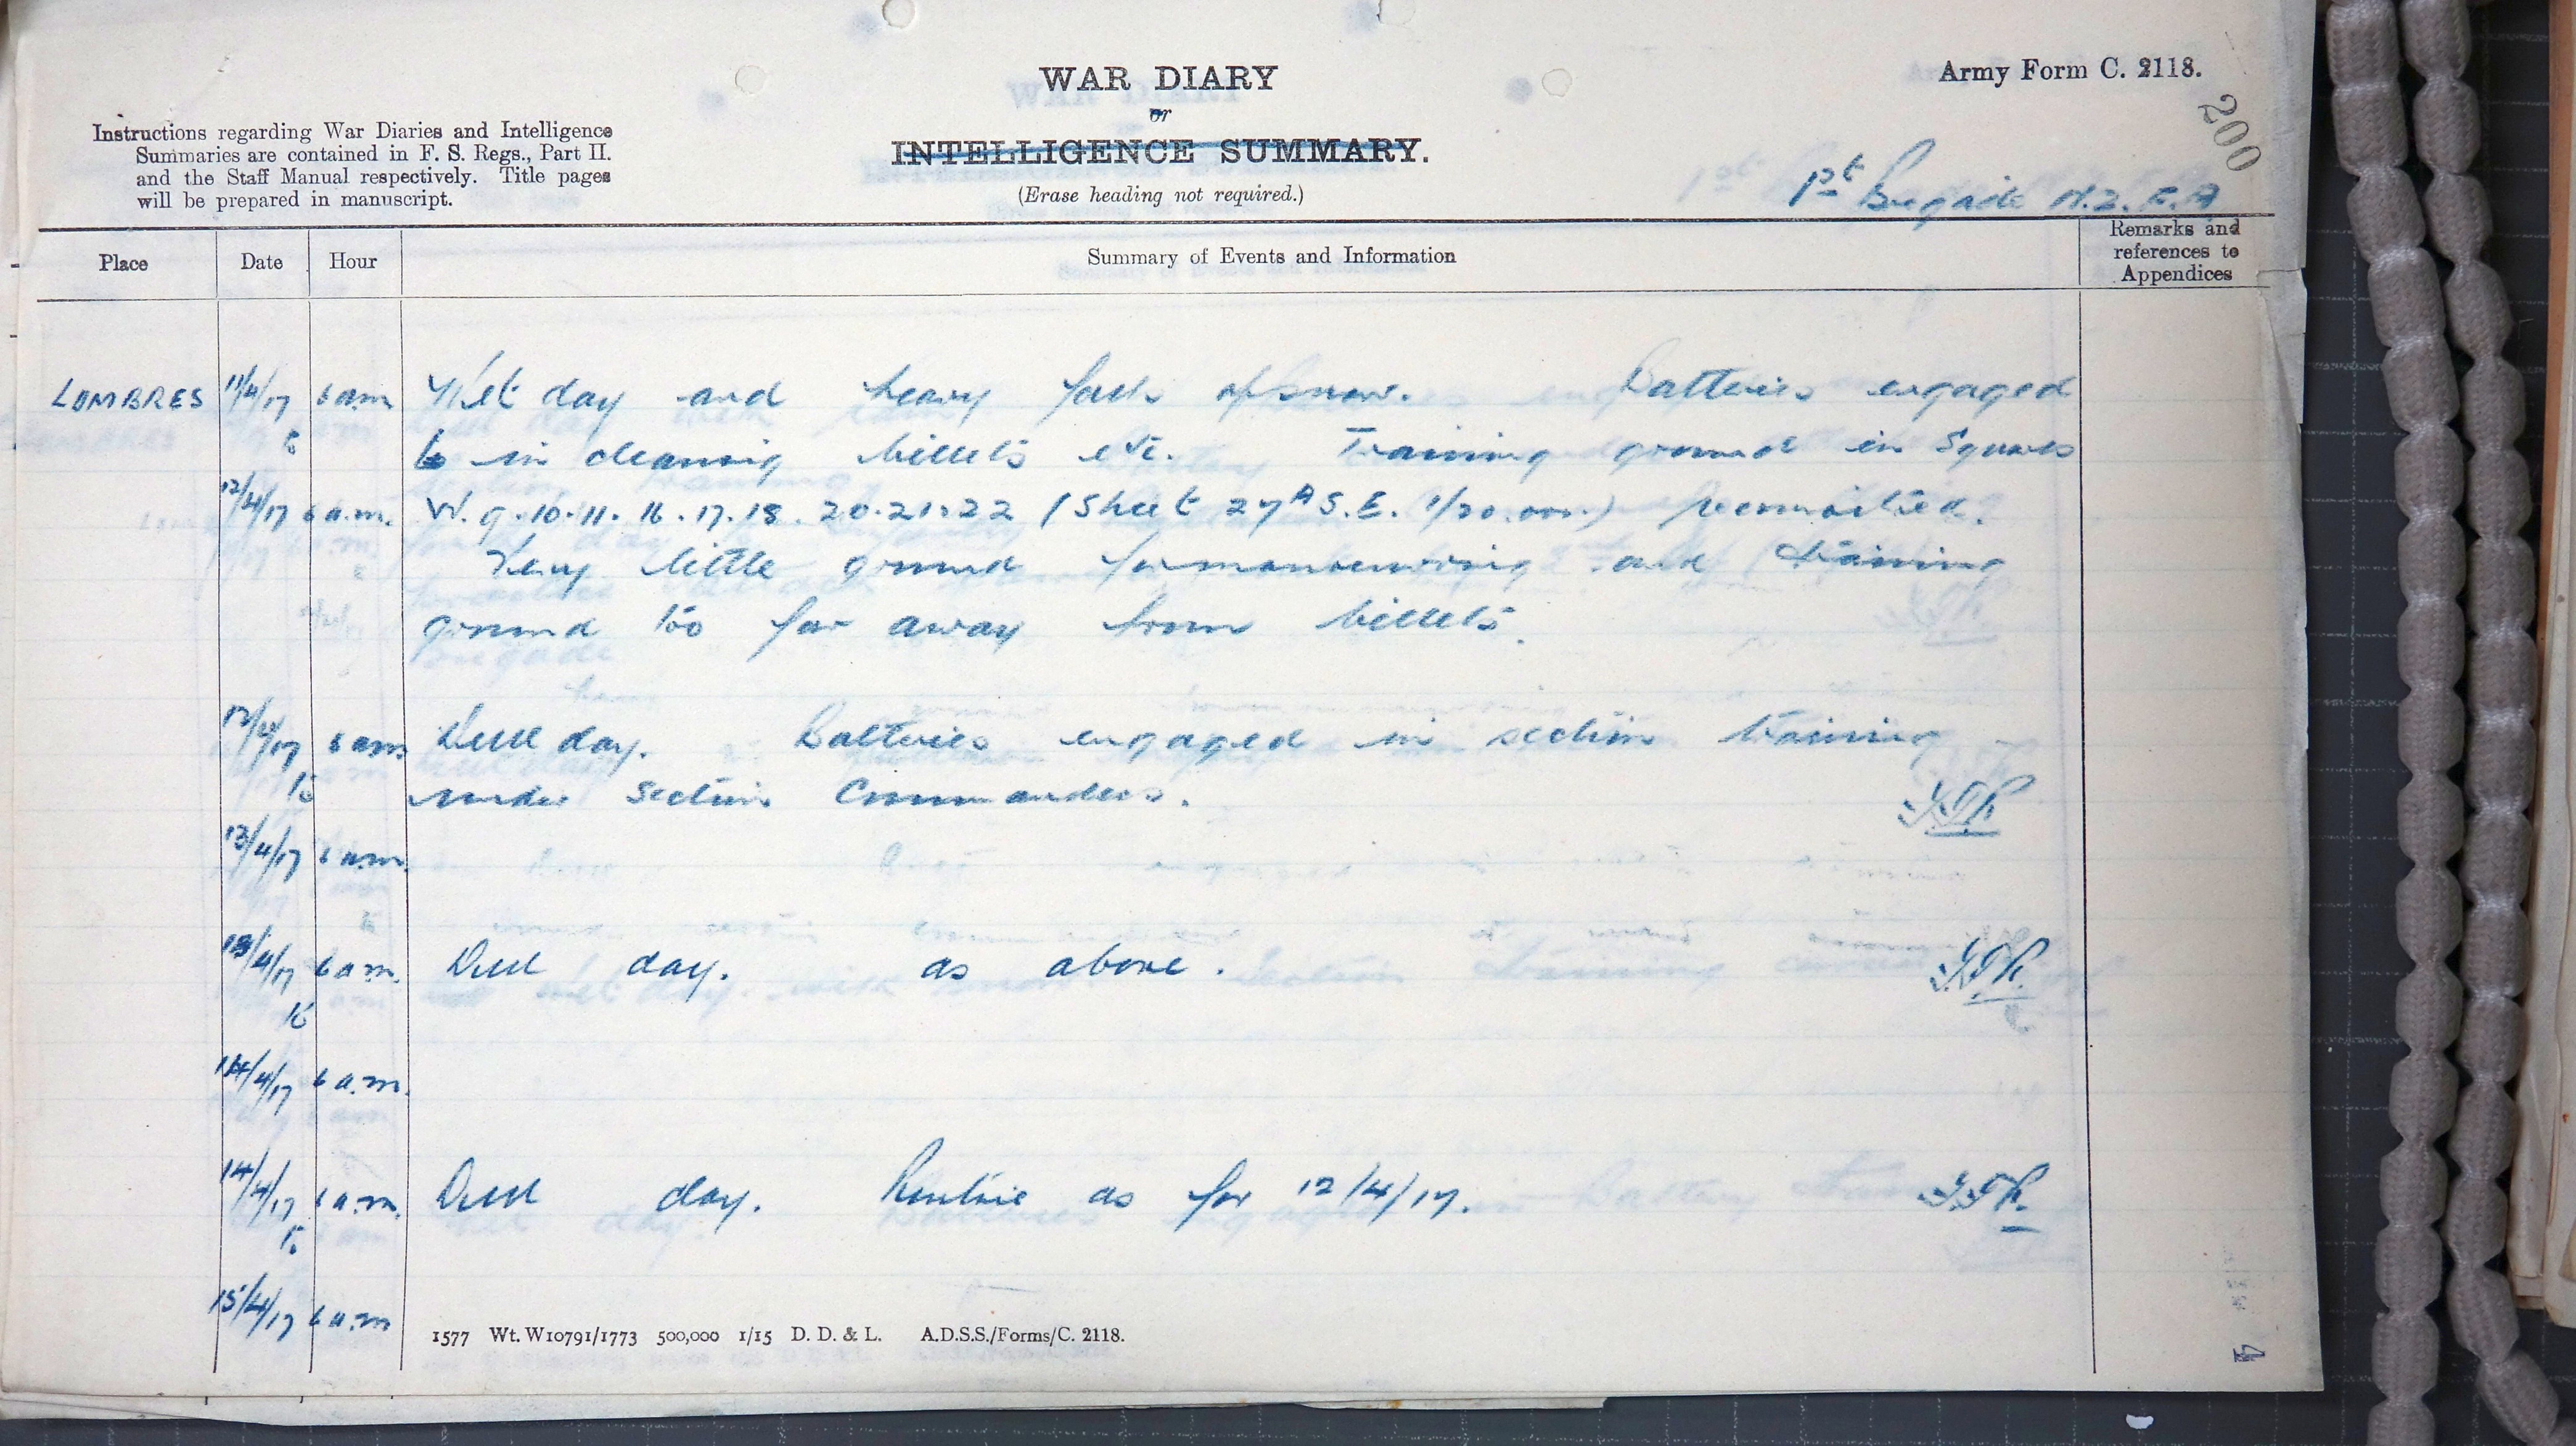 WAR DIARY
or
INTELLIGENCE SUMMARY.
(Erase heading not required.)
Army Form C. 2118.
200
Instructions regarding War Diaries and Intelligence
Summaries are contained in F. S. Regs., Part II.
and the Staff Manual respectively. Title pages
will be prepared in manuscript.
1st Brigade N.Z.F.A
Place Date Hour Summary of Events and Information Remarks and references to Appendices
LUMBRES 11/4/17 6am Wet day and heavy fall of snow. Batteries engaged
to in cleaning billets etc. Training ground in Squares
12/4/17 6 a.m. W. 9.10.11.16.17.18.20.21.22 (Sheet 27A S.E. 1/20.000) reconnoitred.
Very little ground for manoeuvring and training
ground too far away from billets.
12/4/17 6am Dull day. Batteries engaged in section training
to under Section Commanders.
13/4/17 6 am.
13/4/17 6am. Dull day. as above.
to
14/4/17 6 a.m.
14/4/17 6 a.m. Dull day. Routine as for 12/4/17.
to
15/4/17 6 a.m
1577 Wt. W10791/1773 500,000 1/15 D. D. & L. A.D.S.S./Forms/C. 2118.
4